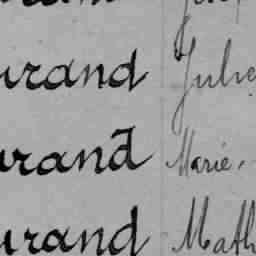 urand Julie
urand Marie
urand Math